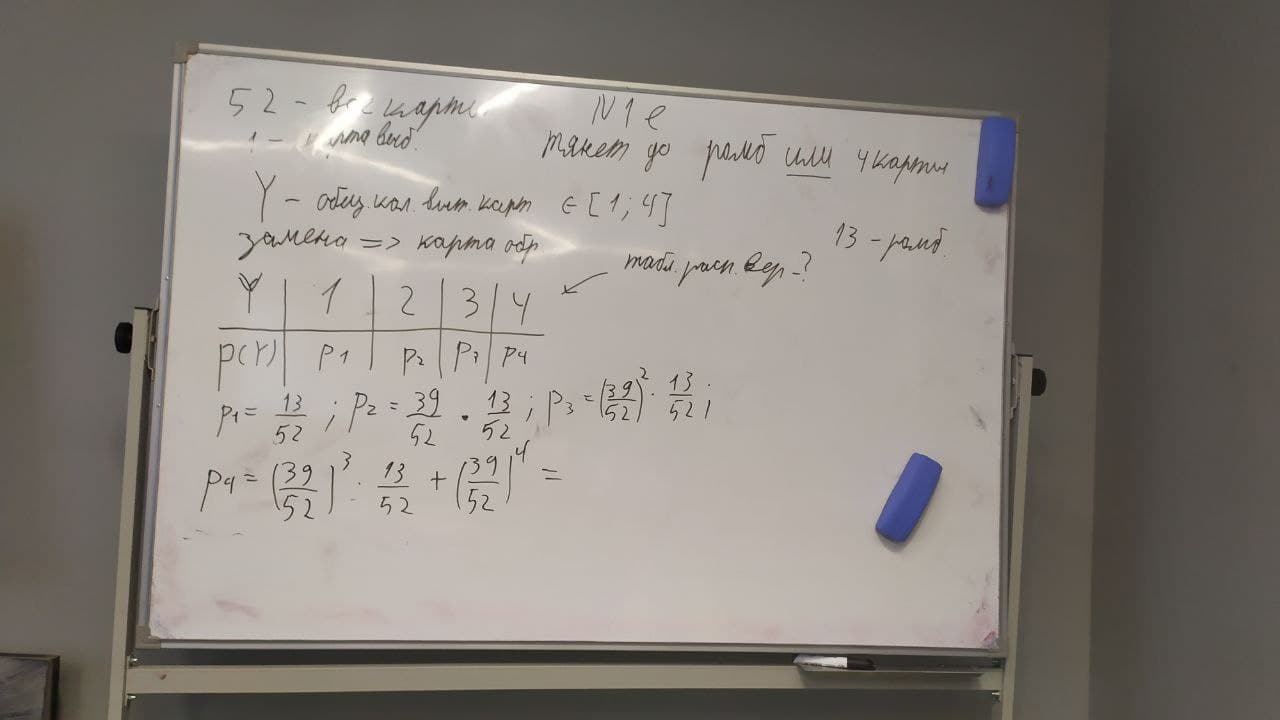 52 - все карты
N1e
1 - карта выб.
тянет до ромб или 4 карты
Y - общ. кол. выт. карт ∈ [1; 4]
13 - ромб.
замена => карта обр
табл. расп. вер - ?
Y | 1 | 2 | 3 | 4
P(Y) | P1 | P2 | P3 | P4
P1 = 13/52 ; P2 = 39/52 · 13/52 ; P3 = (39/52)^2 · 13/52 ;
P4 = (39/52)^3 · 13/52 + (39/52)^4 =